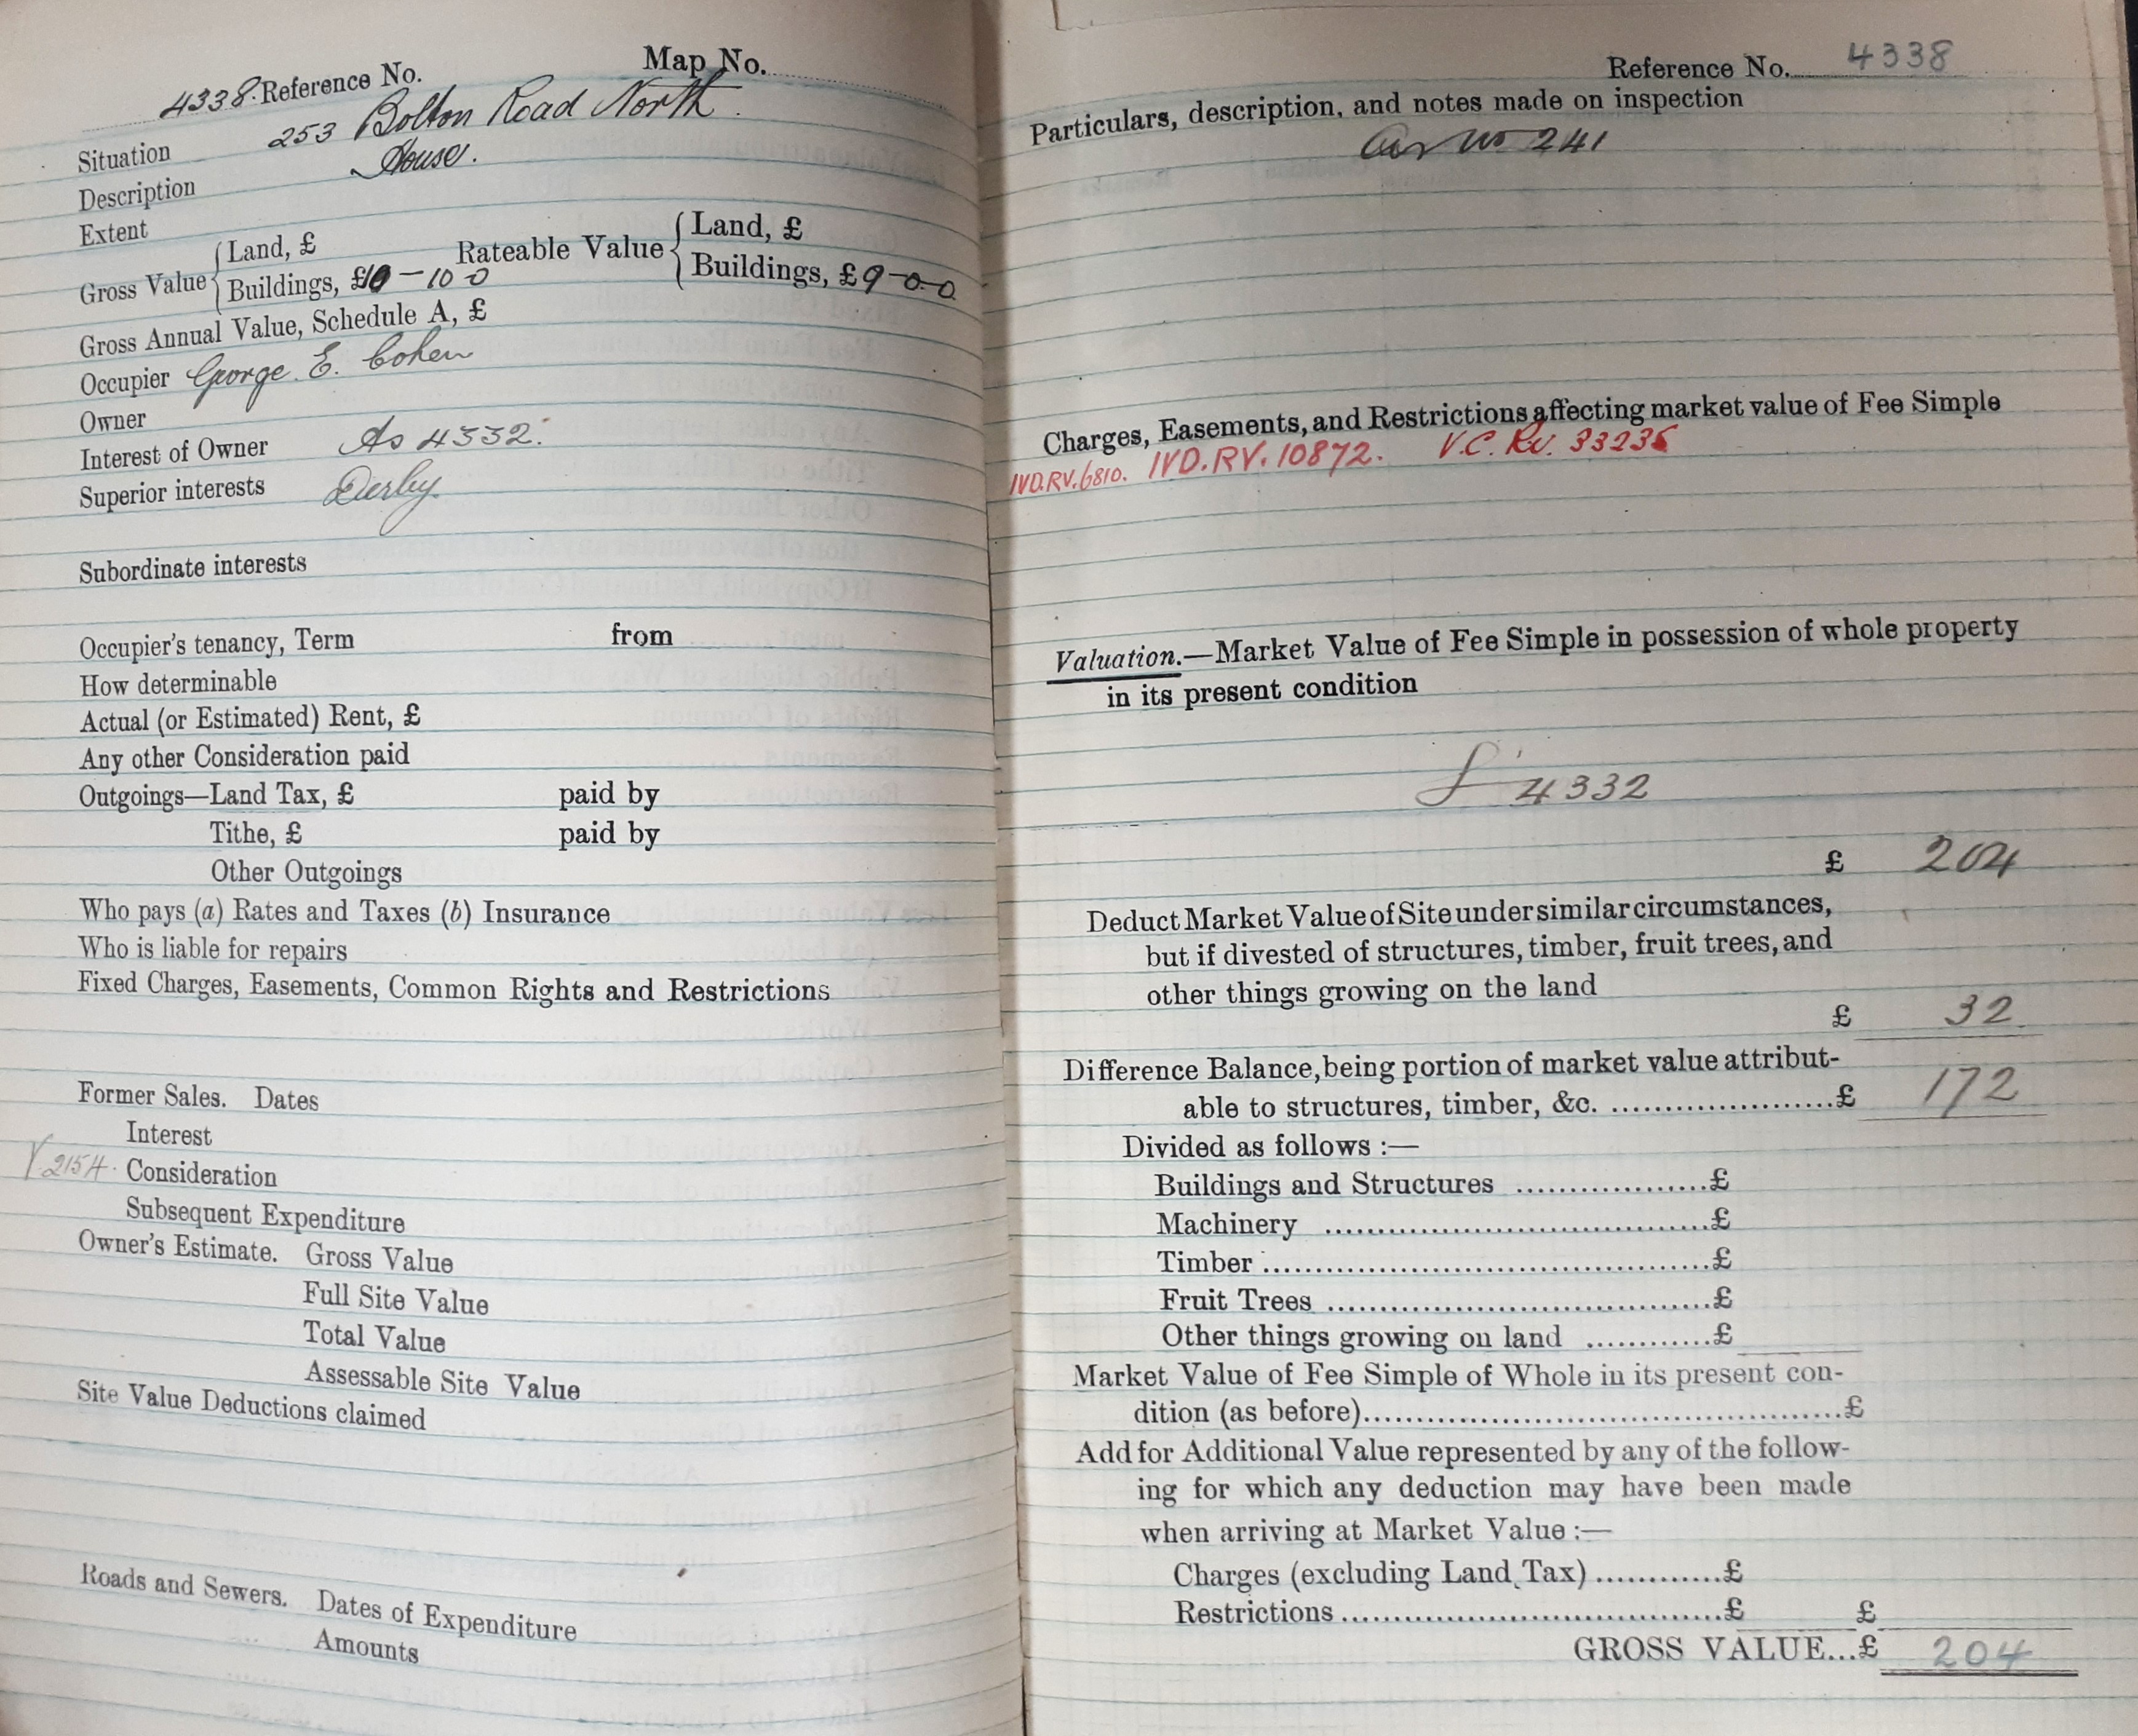 4338. Reference No. Map No.
Situation 253 Bolton Road North.
Description House.
Extent
Gross Value { Land, £
Buildings, £10 - 10 - 0
Rateable Value { Land, £
Buildings, £9-0-0
Gross Annual Value, Schedule A, £
Occupier George. E. Cohen
Owner
Interest of Owner As 4332.
Superior interests Derby
Subordinate interests
Occupier's tenancy, Term from
How determinable
Actual (or Estimated) Rent, £
Any other Consideration paid
Outgoings—Land Tax, £ paid by
Tithe, £ paid by
Other Outgoings
Who pays (a) Rates and Taxes (b) Insurance
Who is liable for repairs
Fixed Charges, Easements, Common Rights and Restrictions
Former Sales. Dates
Interest
Y.2154. Consideration
Subsequent Expenditure
Owner's Estimate. Gross Value
Full Site Value
Total Value
Assessable Site Value
Site Value Deductions claimed
Roads and Sewers. Dates of Expenditure
Amounts
Reference No. 4338
Particulars, description, and notes made on inspection
as no 241
Charges, Easements, and Restrictions affecting market value of Fee Simple
IVD.RV.6810. IVD.RV.10872. V.C. RV. 33235
Valuation.—Market Value of Fee Simple in possession of whole property
in its present condition
4332
£ 204
Deduct Market Value of Site under similar circumstances,
but if divested of structures, timber, fruit trees, and
other things growing on the land
£ 32
Difference Balance, being portion of market value attribut-
able to structures, timber, &c. ......................£ 172
Divided as follows :—
Buildings and Structures ...................£
Machinery ......................................£
Timber ............................................£
Fruit Trees ......................................£
Other things growing on land ............£
Market Value of Fee Simple of Whole in its present con-
dition (as before)................................................£
Add for Additional Value represented by any of the follow-
ing for which any deduction may have been made
when arriving at Market Value :—
Charges (excluding Land Tax) ............£
Restrictions ......................................£ £
GROSS VALUE...£ 204